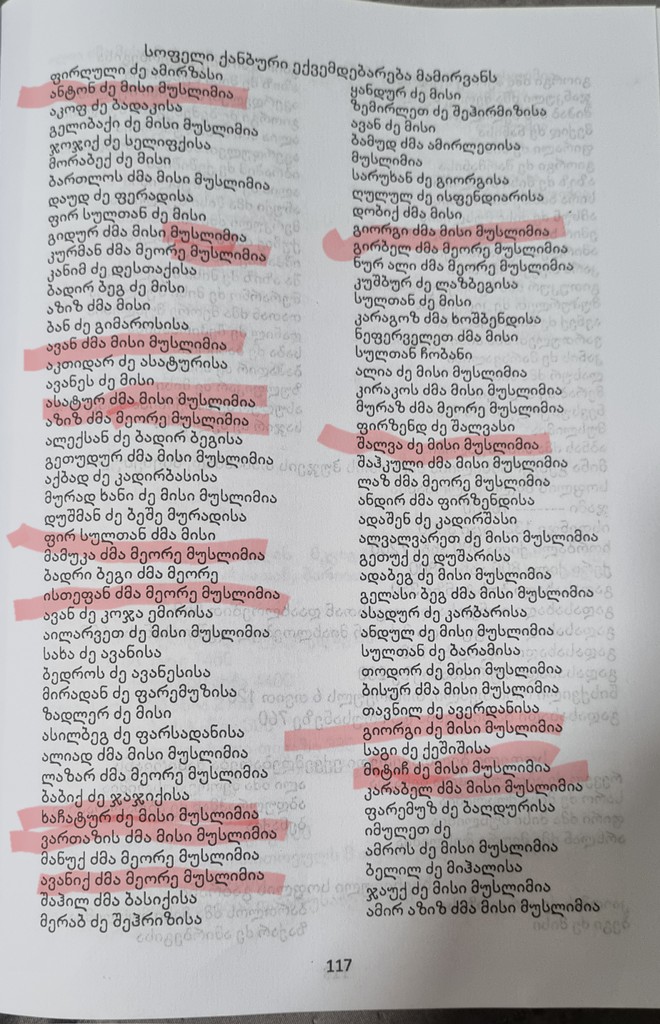 სოფელი ქანბური ექვემდებარება მამირვანს
ფირღული ძე ამირზასი
ანტონ ძე მისი მუსლიმია
აკოფ ძე ბადაკისა
გელიბაქი ძე მისი მუსლიმია
ჯოჯიქ ძე სელიფქისა
მორაბექ ძე მისი
ბართლოს ძმა მისი მუსლიმია
დაუდ ძე ფერადისა
ფირ სულთან ძე მისი
გიდურ ძმა მისი მუსლიმია
კურმან ძმა მეორე მუსლიმია
კანიმ ძე დესთაქისა
ბადირ ბეგ ძე მისი
აზიზ ძმა მისი
ბან ძე გიმაროსისა
ავან ძმა მისი მუსლიმია
აკთიდარ ძე ასატურისა
ავანეს ძე მისი
ასატურ ძმა მისი მუსლიმია
აზიზ ძმა მეორე მუსლიმია
ალექსან ძე ბადირ ბეგისა
გეთუდურ ძმა მისი მუსლიმია
აქბად ძე კადირბასისა
მურად ხანი ძე მისი მუსლიმია
დუშმან ძე ბეშე მურადისა
ფირ სულთან ძმა მისი
მამუკა ძმა მეორე მუსლიმია
ბადრი ბეგი ძმა მეორე
ისთეფან ძმა მეორე მუსლიმია
ავან ძე კოჯა ემირისა
აილარვეთ ძე მისი მუსლიმია
სახა ძე ავანისა
ბედროს ძე ავანესისა
მირადან ძე ფარემუზისა
ზადლერ ძე მისი
ასილბეგ ძე ფარსადანისა
ალიად ძმა მისი მუსლიმია
ლაზარ ძმა მეორე მუსლიმია
ბაბიქ ძე ჯაჯიქისა
ხაჩატურ ძე მისი მუსლიმია
ვართაზის ძმა მისი მუსლიმია
მანუქ ძმა მეორე მუსლიმია
ავანიქ ძმა მეორე მუსლიმია
შაჰილ ძმა ბასიქისა
მერაბ ძე შეჰრიზისა
ყანდურ ძე მისი
ზემირლეთ ძე შეჰირმიზისა
ავან ძე მისი
ბამუდ ძმა ამირლეთისა
მუსლიმია
სარუხან ძე გიორგისა
ღულულ ძე ისფენდიარისა
დობიქ ძმა მისი
გიორგი ძმა მისი მუსლიმია
გირბელ ძმა მეორე მუსლიმია
ნურ ალი ძმა მეორე მუსლიმია
კუშბურ ძე ლაზბეგისა
სულთან ძე მისი
კარაგოზ ძმა ხოშბენდისა
ნეფერველეთ ძმა მისი
სულთან ჩობანი
ალია ძე მისი მუსლიმია
კირაკოს ძმა მისი მუსლიმია
მურაზ ძმა მეორე მუსლიმია
ფირზენდ ძე შალვასი
შალვა ძე მისი მუსლიმია
შაჰკული ძმა მისი მუსლიმია
ლაზ ძმა მეორე მუსლიმია
ანდირ ძმა ფირზენდისა
ადაშენ ძე კადირშასი
ალვალვარეთ ძე მისი მუსლიმია
გეთუქ ძე დუშარისა
ადაბეგ ძე მისი მუსლიმია
გელასი ბეგ ძმა მისი მუსლიმია
ასადურ ძე კარბარისა
ანდულ ძე მისი მუსლიმია
სულთან ძე ბარამისა
თოდორ ძე მისი მუსლიმია
ბისურ ძმა მისი მუსლიმია
თავნილ ძე ავერდანისა
გიორგი ძე მისი მუსლიმია
საგი ძე ქეშიშისა
მიტიჩ ძე მისი მუსლიმია
კარაბელ ძმა მისი მუსლიმია
ფარემუზ ძე ბაღდურისა
იმულეთ ძე
ამროს ძე მისი მუსლიმია
ბელილ ძე მიჰალისა
ჯაუქ ძე მისი მუსლიმია
ამირ აზიზ ძმა მისი მუსლიმია
117